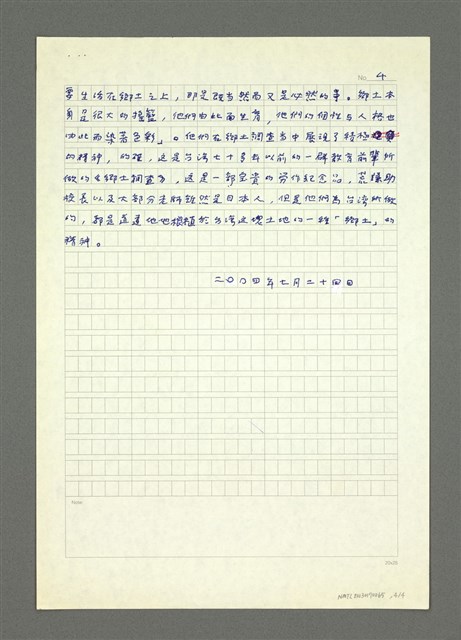 No. 4
要生活在鄉土之上，那是既當然而又是必然的事。鄉土本
身是很大的搖籃，他們由此而生育，他們的個性与人格也
由此而染著色彩」。他們在鄉土調查當中展現了積極
的精神，的確，這是台湾七十多年以前的一群教育前輩所
做的《鄉土調查》，這是一部宝貴的勞作紀念品，
校長以及大部分老師雖然是日本人，但是他們為台湾所做
的，都是植於台湾這塊土地的一種「鄉土」的
精神。
二〇〇四年七月二十四日
Note:
20x25